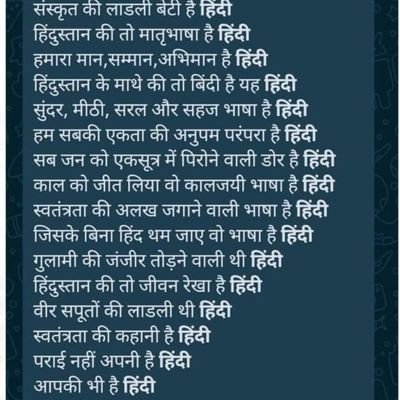 संस्कृत की लाडली बेटी है हिंदी
हिंदुस्तान की तो मातृभाषा है हिंदी
हमारा मान,सम्मान,अभिमान है हिंदी
हिंदुस्तान के माथे की तो बिंदी है यह हिंदी
सुंदर, मीठी, सरल और सहज भाषा है हिंदी
हम सबकी एकता की अनुपम परंपरा है हिंदी
सब जन को एकसूत्र में पिरोने वाली डोर है हिंदी
काल को जीत लिया वो कालजयी भाषा है हिंदी
स्वतंत्रता की अलख जगाने वाली भाषा है हिंदी
जिसके बिना हिंद थम जाए वो भाषा है हिंदी
गुलामी की जंजीर तोड़ने वाली थी हिंदी
हिंदुस्तान की तो जीवन रेखा है हिंदी
वीर सपूतों की लाडली थी हिंदी
स्वतंत्रता की कहानी है हिंदी
पराई नहीं अपनी है हिंदी
आपकी भी है हिंदी